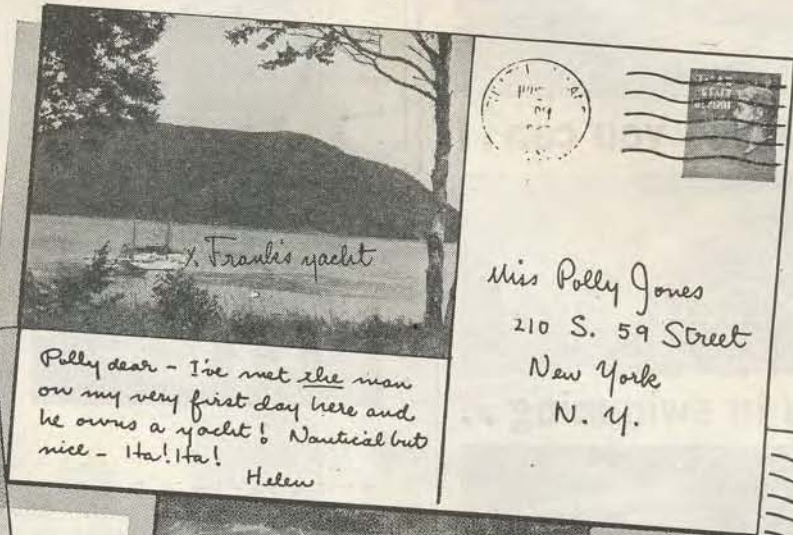 X Frank's yacht
Polly dear - I've met the man
on my very first day here and
he owns a yacht! Nautical but
nice - Ha! Ha!
Helen
Miss Polly Jones
210 S. 59 Street
New York
N. Y.